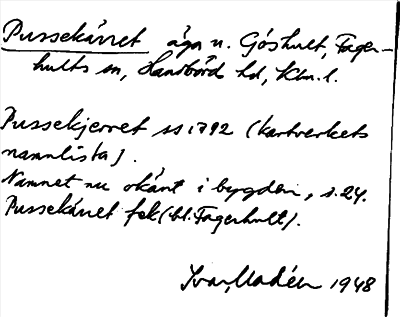 Pussekärret äga n. Göshult, Fager-
hults sn, Handbörd hd, Klm. l.
Pussekjerret ss 1792 (Kartverkets
namnlista).
Namnet nu okänt i bygden, s. 24.
Pussekärret fek (bl. Fagerhult).
Ivar Modéer 1948